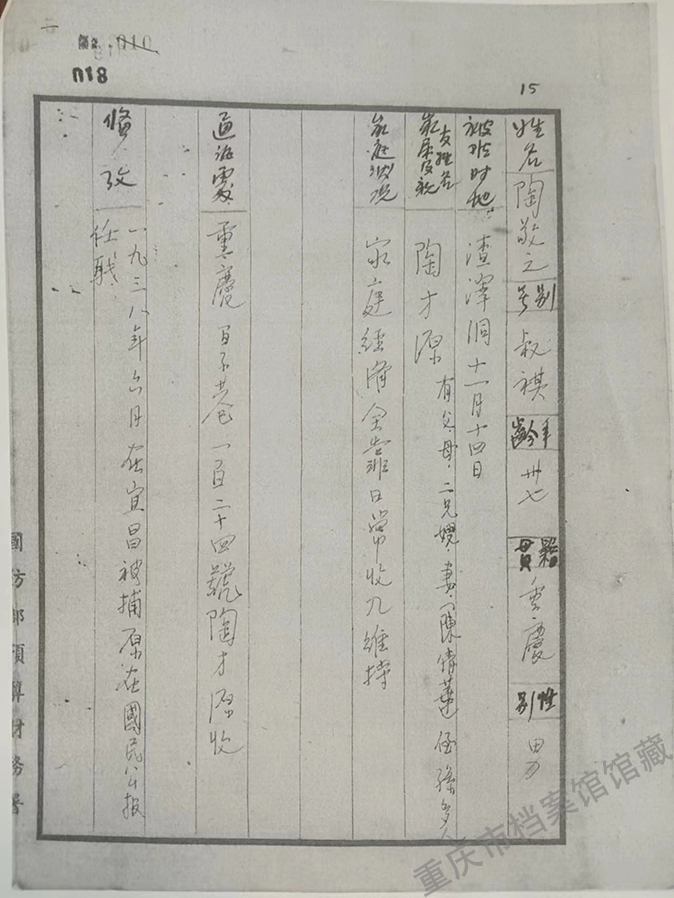 018
15
姓名 陶敬之 別号 叔祺 年齡 卅七 籍貫 重慶 性別 男
被 時地 渣滓洞十一月十四日
家屬及親友姓名 陶才源 有父、母、二兄嫂、妻、陳倩蓮 侄 孫 多人
家庭狀況 家庭經濟全靠日常收入維持
通訊處 重慶百子巷一百二十四號陶才源收
備攷 一九三八年六月在宜昌被捕原在國民公報
任職
國防部預算財務署
重庆市档案馆馆藏